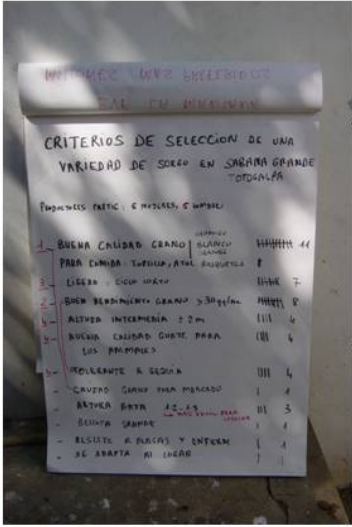 CRITERIOS DE SELECCION DE UNA
VARIEDAD DE SORGO EN SABANA GRANDE
TOTOGALPA
PRODUCTORES PARTIC: 6 MUJERES, 5 HOMBRES
1 BUENA CALIDAD GRANO BLANCO GRANDE 11
PARA COMIDA: TORTILLA, ATOL, ROSQUILLA
3 LIGERO: CICLO CORTO 7
2 BUEN RENDIMIENTO GRANO > 30 qq/mz 8
ALTURA INTERMEDIA ± 2m IIII 4
BUENA CALIDAD GUATE PARA IIII 4
LOS ANIMALES
TOLERANTE A SEQUIA IIII 4
CALIDAD GRANO PARA MERCADO I 1
- ALTURA BAJA III 3
MAS FACIL PARA
- BELLOTA GRANDE I 1
- RESISTE A PLAGAS Y ENFERM I 1
- SE ADAPTA AL LUGAR I 1